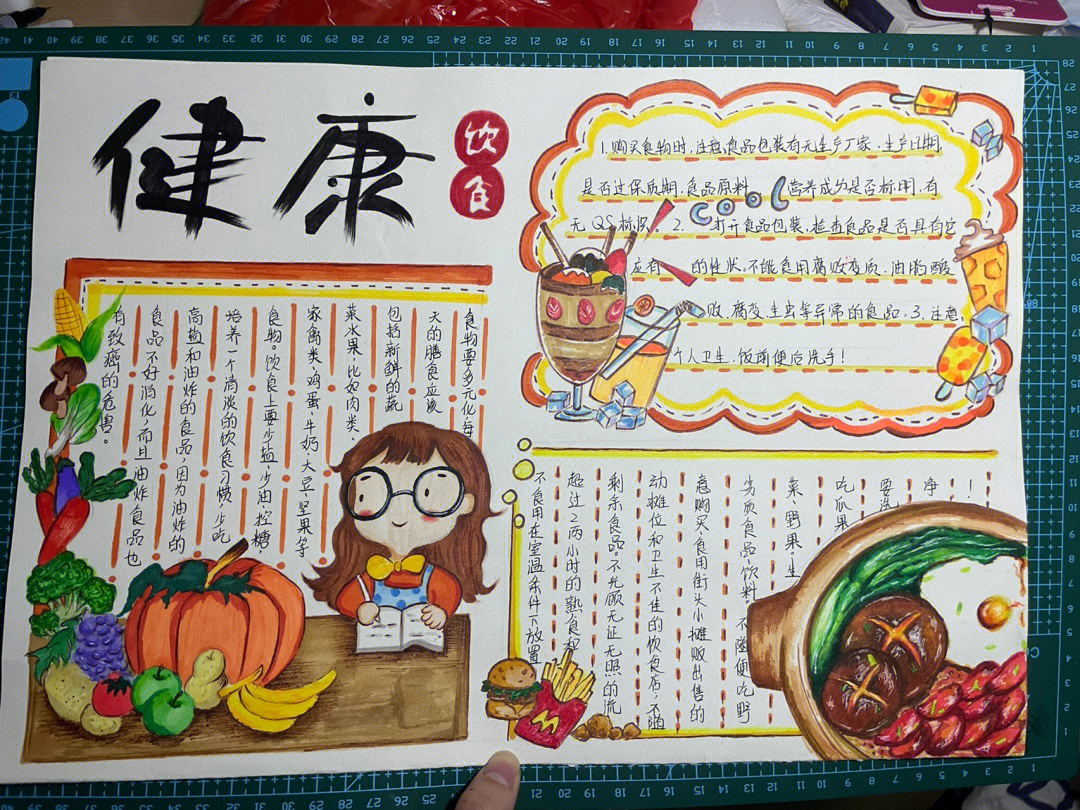 健康
饮食
食物要多元化,每
天的膳食应该
包括新鲜的蔬
菜水果,比如肉类、
家禽类,鸡蛋牛奶、大豆、坚果等
食物。饮食上要少盐,少油,控糖
培养一个清淡的饮食习惯,少吃
高盐和油炸的食品,因为油炸的
食品不好消化,而且油炸食品也
有致癌的危害。
1.购买食物时,注意食品包装有无生产厂家、生产日期,
是否过保质期,食品原料、营养成分是否标明,有
cool
无QS标识。2.打开食品包装,检查食品是否具有它
应有的性状,不能食用腐败变质、油脂酸
败、腐变、生虫等异常的食品。3.注意
个人卫生,饭前便后洗手!
不食用在室温条件下放置
超过2两小时的熟食和
剩余食品。不光顾无证无照的流
动摊位和卫生不佳的饮食店,不随
意购买,食用街头小摊贩出售的
劣质食品、饮料。不随便吃野
菜野果,生
吃瓜果
要洗
净
!